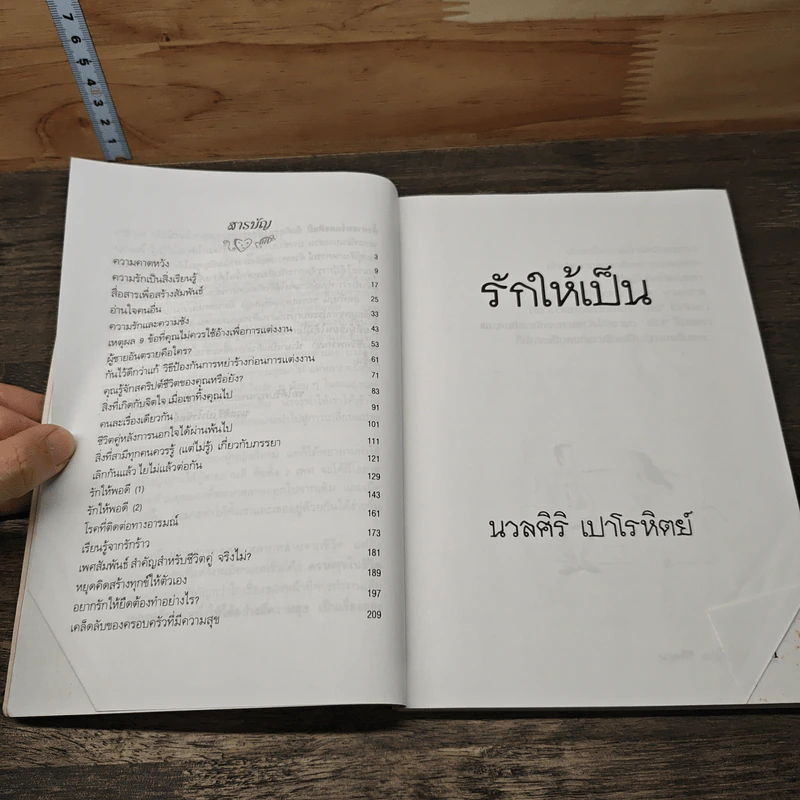 7
6
5
4
3
2
1
สารบัญ
ความคาดหวัง 3
ความรักเป็นสิ่งเรียนรู้ 9
สื่อสารเพื่อสร้างสัมพันธ์ 17
อ่านใจคนอื่น 25
ความรักและความชัง 33
เหตุผล 9 ข้อที่คุณไม่ควรใช้อ้างเพื่อการแต่งงาน 43
ผู้ชายอันตรายคือใคร? 53
กันไว้ดีกว่าแก้ วิธีป้องกันการหย่าร้างก่อนการแต่งงาน 61
คุณรู้จักสคริปต์ชีวิตของคุณหรือยัง? 71
สิ่งที่เกิดกับจิตใจ เมื่อเขาทิ้งคุณไป 83
คนละเรื่องเดียวกัน 91
ชีวิตคู่หลังการนอกใจได้ผ่านพ้นไป 101
สิ่งที่สามีทุกคนควรรู้ (แต่ไม่รู้) เกี่ยวกับภรรยา 111
เลิกกันแล้ว ใยไม่แล้วต่อกัน 121
รักให้พอดี (1) 129
รักให้พอดี (2) 143
โรคที่ติดต่อทางอารมณ์ 161
เรียนรู้จากรักร้าว 173
เพศสัมพันธ์ สำคัญสำหรับชีวิตคู่ จริงไม่? 181
หยุดคิดสร้างทุกข์ให้ตัวเอง 189
อยากรักให้ยืดต้องทำอย่างไร? 197
เคล็ดลับของครอบครัวที่มีความสุข 209
รักให้เป็น
นวลศิริ เปาโรหิตย์